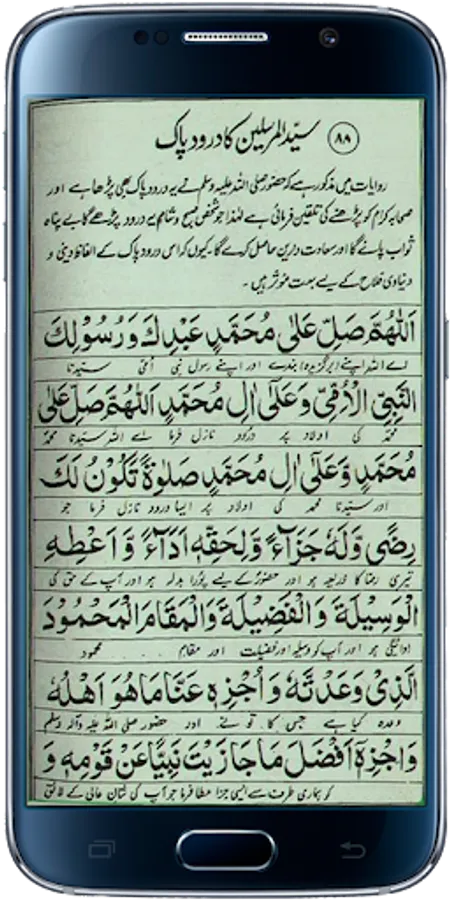 ۸۸ سیّد المرسلین کا درود پاک
روایات میں مذکور ہے کہ حضور صلی اللہ علیہ وسلم نے یہ درود پاک بھی پڑھا ہے اور
صحابہ کرام کو پڑھنے کی تلقین فرمائی ہے لہٰذا جو شخص صبح و شام یہ درود پڑھے گا بے پناہ
ثواب پائے گا اور سعادت دارین حاصل کرے گا۔ کیوں کہ اس درود پاک کے الفاظ دینی و
دنیاوی فلاح کے لیے بہت مؤثر ہیں۔
اَللّٰهُمَّ صَلِّ عَلٰى مُحَمَّدٍ عَبْدِكَ وَرَسُوْلِكَ
اے اللہ اپنے (برگزیدہ) بندے اور اپنے رسول نبی امّی سیّدنا
النَّبِيِّ الْاُمِّيِّ وَعَلٰٓى اٰلِ مُحَمَّدٍ اَللّٰهُمَّ صَلِّ عَلٰى
محمد کی اولاد پر درود نازل فرما اے اللہ سیّدنا محمد
مُحَمَّدٍ وَّعَلٰٓى اٰلِ مُحَمَّدٍ صَلٰوةً تَكُوْنُ لَكَ
اور سیّدنا محمد کی اولاد پر ایسا درود نازل فرما جو
رِضًى وَّلَهٗ جَزَآءً وَّلِحَقِّهٖٓ اَدَآءً وَّاَعْطِهِ
تیری رضا کا ذریعہ ہو اور حضور کے لیے پورا بدلہ ہو اور آپ کے حق کی
الْوَسِيْلَةَ وَالْفَضِيْلَةَ وَالْمَقَامَ الْمَحْمُوْدَ
ادائیگی ہو اور آپ کو وسیلہ اور فضیلت اور مقام محمود
الَّذِيْ وَعَدْتَّهٗ وَاَجْزِهٖ عَنَّا مَا هُوَ اَهْلُهٗ
وعدہ کیا ہے جس کا تو نے اور حضور صلی اللہ علیہ وآلہ وسلم
وَاَجْزِهٖٓ اَفْضَلَ مَا جَازَيْتَ نَبِيًّا عَنْ قَوْمِهٖ وَ
کو ہماری طرف سے ایسی جزا عطا فرما جو آپ کی شان عالی کے لائق